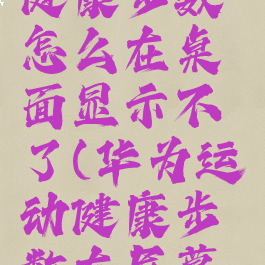 健康步数
怎么在桌
面显示不
了(华为运
动健康步